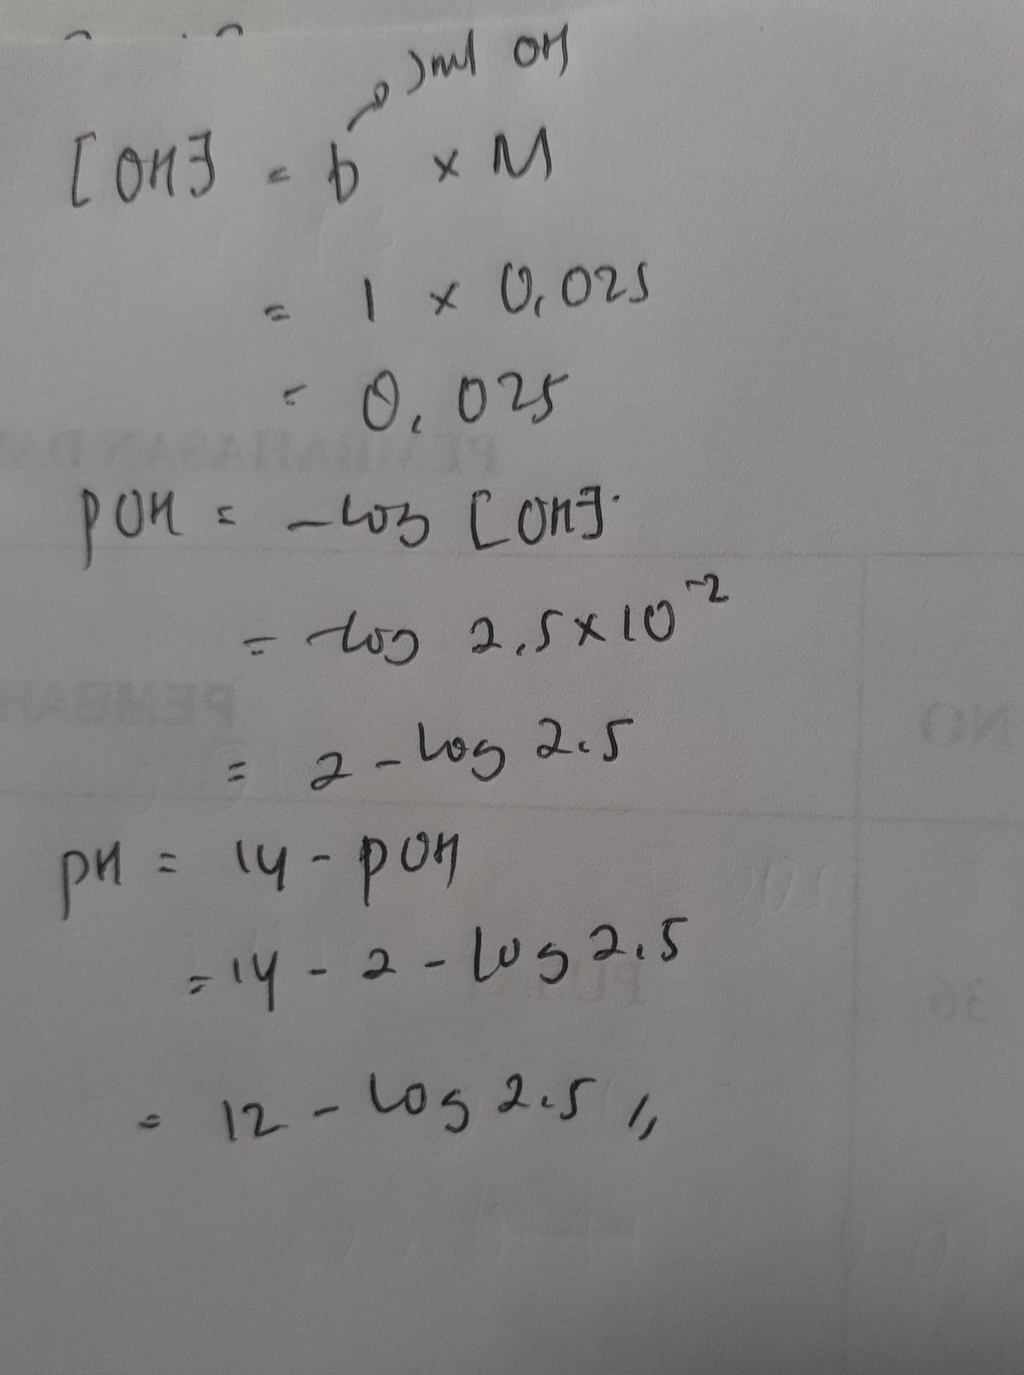 Jml OH
[OH] = b x M
= 1 x 0,025
= 0,025
pOH = -log [OH]
= -log 2,5 x 10⁻²
= 2 - log 2.5
pH = 14 - pOH
= 14 - 2 - log 2.5
= 12 - log 2.5 //